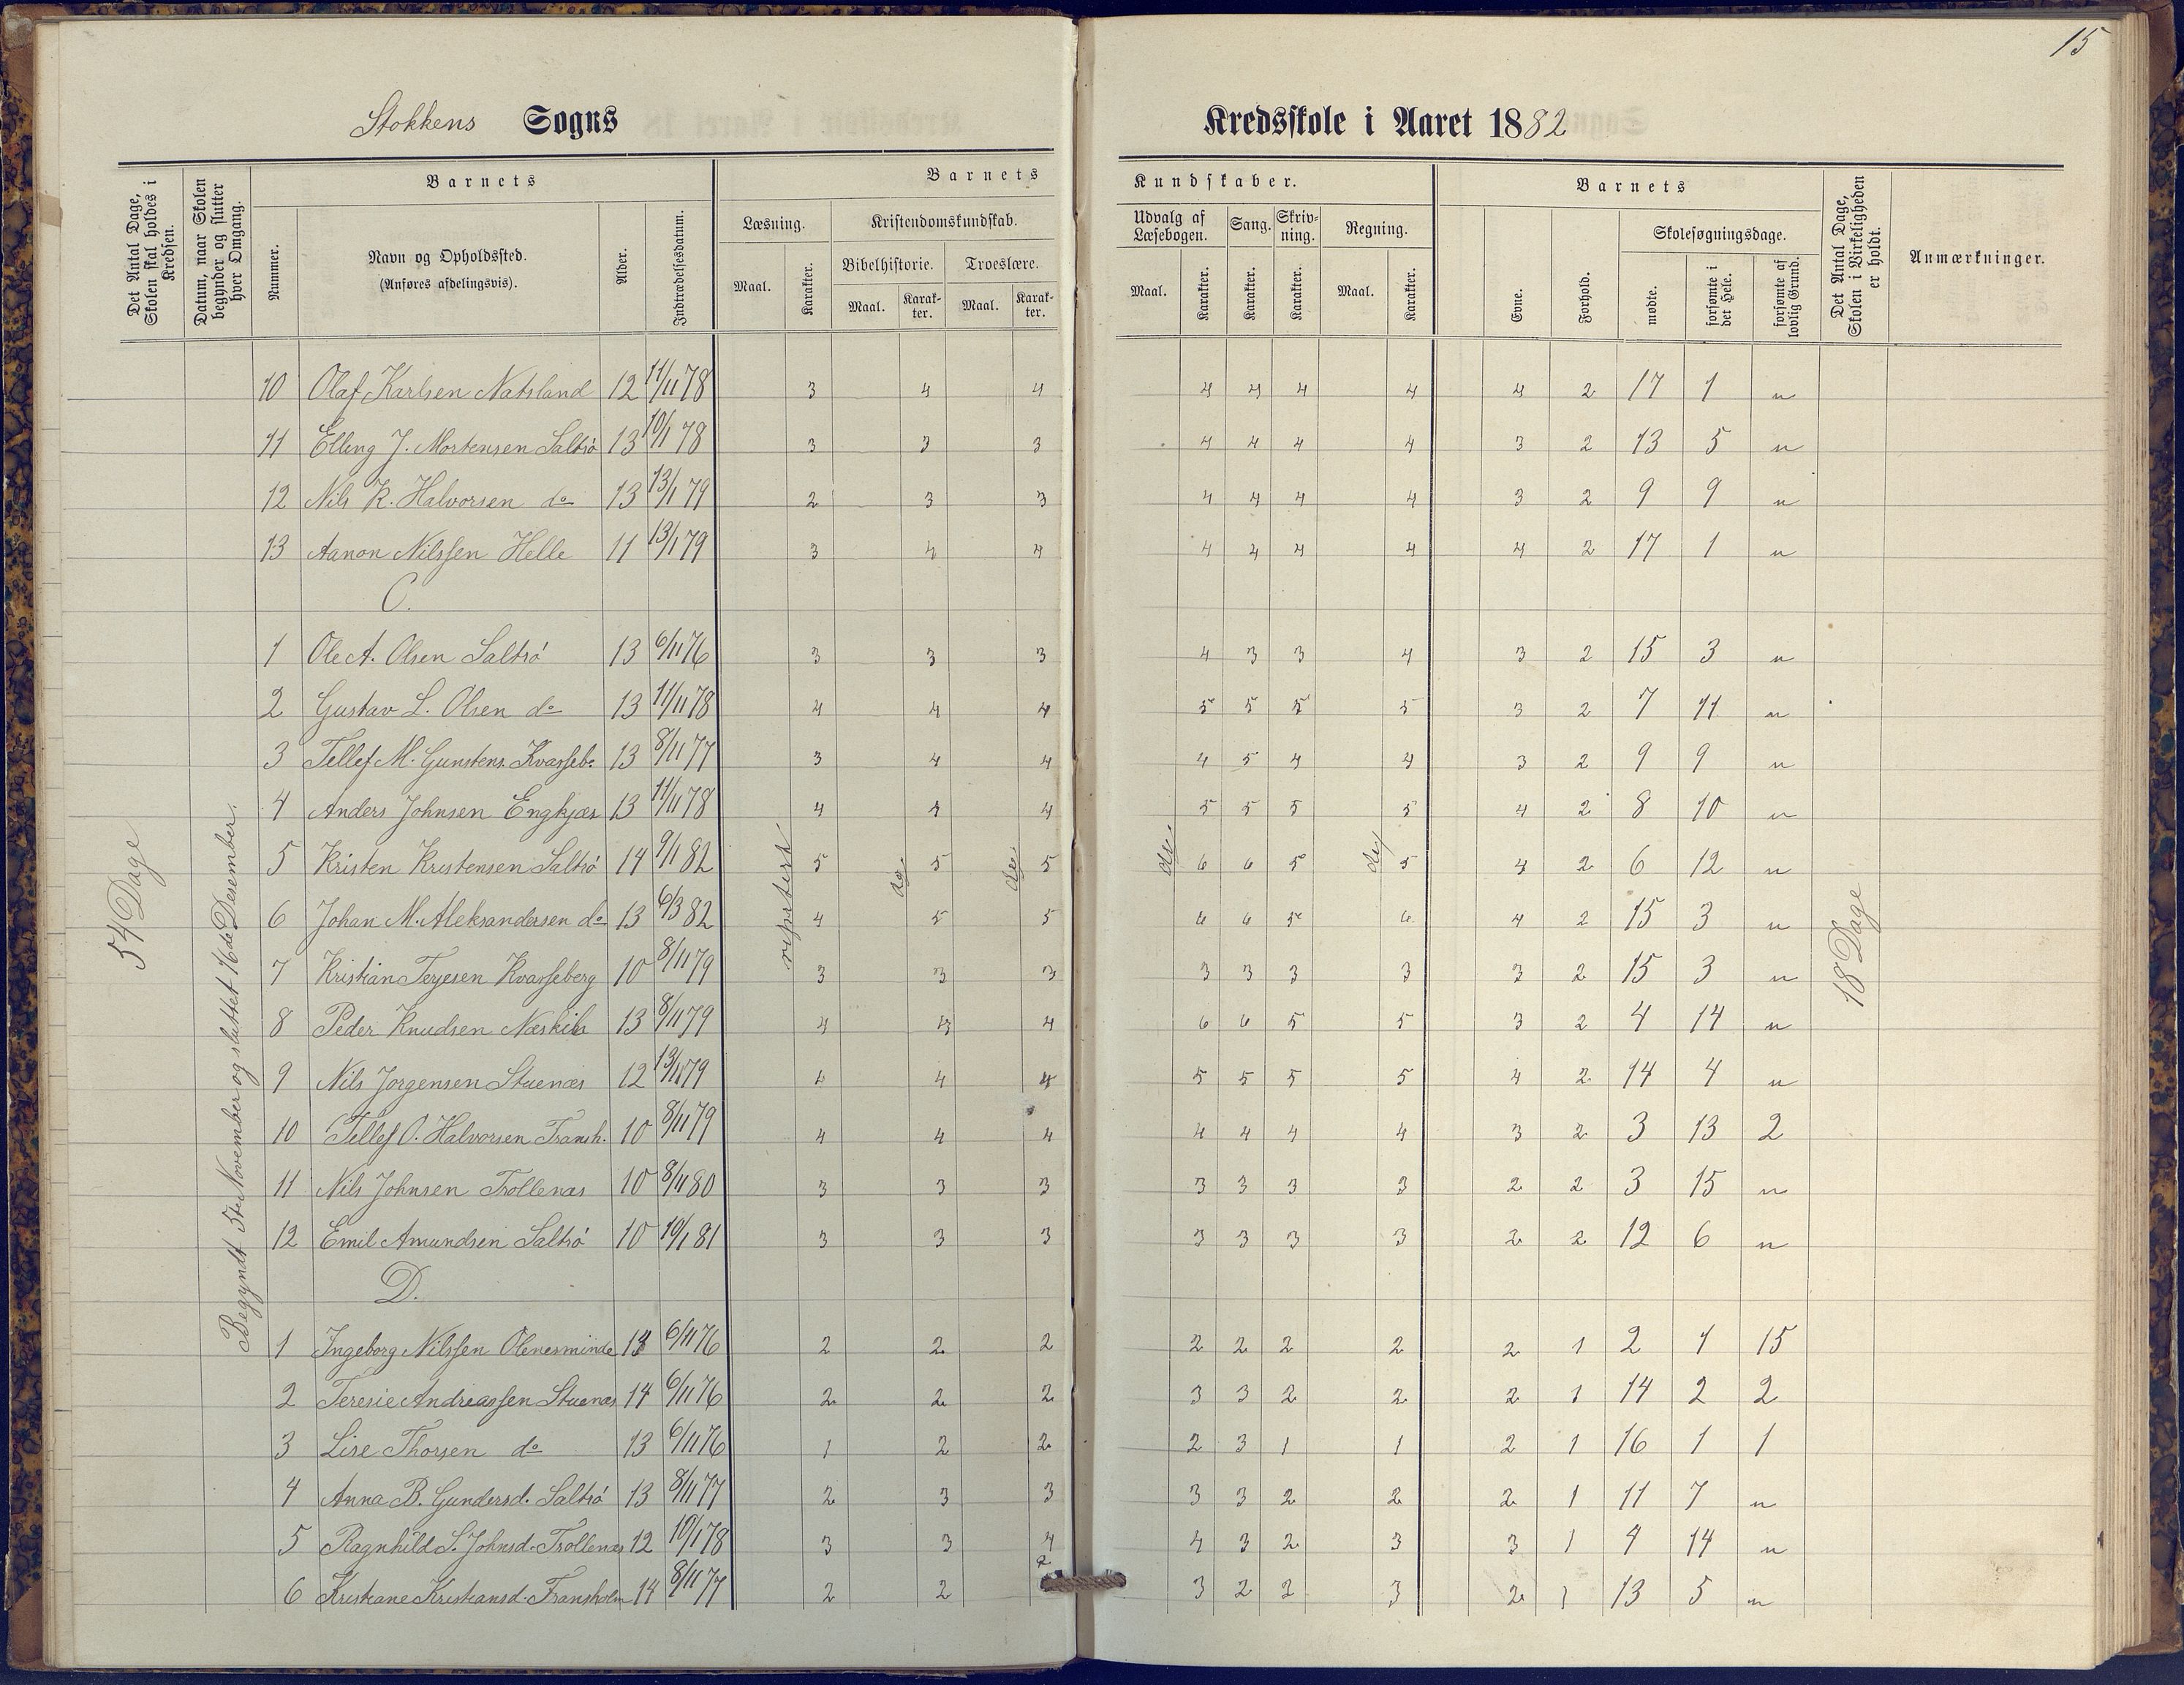 15
Stokkens Sogns Kredsskole i Aaret 1882
Det Antal Dage, Skolen skal holdes i Kredsen.
Datum, naar Skolen begynder og slutter hver Omgang.
Barnets
Nummer.
Navn og Opholdssted.
(Anføres afdelingsvis).
Alder.
Indtrædelsesdatum.
Barnets Kundskaber.
Læsning.
Maal. Karakter.
Kristendomskundskab.
Bibelhistorie. Troeslære.
Maal. Karakter. Maal. Karakter.
Udvalg af Læsebogen.
Maal. Karakter.
Sang. Karakter.
Skrivning. Karakter.
Regning.
Maal. Karakter.
Barnets
Evne. Forhold.
Skolesøgningsdage.
mødte. forsømte i det Hele. forsømte af lovlig Grund.
Det Antal Dage, Skolen i Virkeligheden er holdt.
Anmærkninger.
10 Olaf Karlsen Natsland 12 11/11 78 3 4 4 4 4 4 4 4 2 17 1 "
11 Elling J. Mortensen Saltrø 13 10/1 78 3 3 3 4 4 4 4 3 2 13 5 "
12 Nils K. Halvorsen do 13 13/1 79 2 3 3 4 4 4 4 3 2 9 9 "
13 Aanon Nilssen Helle 11 13/1 79 3 4 4 4 4 4 4 4 2 17 1 "
C.
1 Ole A. Olsen Saltrø 13 6/11 76 3 3 3 4 3 3 4 3 2 15 3 "
2 Gustav L. Olsen do 13 11/11 78 4 4 4 5 5 5 5 3 2 7 11 "
3 Tellef M. Gunstens. Kvasseb. 13 8/11 77 3 4 4 4 5 4 4 3 2 9 9 "
4 Anders Johnsen Engkjær 13 11/11 78 4 4 4 5 5 5 5 4 2 8 10 "
5 Kristen Kristensen Saltrø 14 9/1 82 5 5 5 6 6 5 5 4 2 6 12 "
6 Johan M. Aleksandersen do 13 6/3 82 4 5 5 6 6 5 6 4 2 15 3 "
7 Kristian Terjesen Kvasseberg 10 8/11 79 3 3 3 3 3 3 3 3 2 15 3 "
8 Peder Knudsen Næskilen 13 8/11 79 4 4 4 6 6 5 5 3 2 4 14 "
9 Nils Jorgensen Stuenæs 12 13/11 79 4 4 4 5 5 5 5 4 2 14 4 "
10 Tellef O. Halvorsen Fransh. 10 8/11 79 4 4 4 4 4 4 4 3 2 3 13 2
11 Nils Johnsen Trollenæs 10 8/11 80 3 3 3 3 3 3 3 2 2 3 15 "
12 Emil Amundsen Saltrø 10 10/1 81 3 3 3 3 3 3 3 2 2 12 6 "
D.
1 Ingeborg Nilssen Olenesminde 13 6/11 76 2 2 2 2 2 2 2 2 1 2 1 15
2 Teresie Andreassen Stuenæs 14 6/11 76 2 2 2 3 3 2 2 2 1 14 2 2
3 Lise Thorsen do 13 6/11 76 1 2 2 2 3 1 1 2 1 16 1 1
4 Anna B. Gundersd. Saltrø 13 8/11 77 2 3 3 3 3 2 2 2 1 11 7 "
5 Ragnhild S. Johnsd. Trollenæs 12 10/1 78 3 3 4 4 3 2 3 3 1 4 14 "
6 Kristiane Kristiansd. Fransholm 14 8/11 77 2 2 2 3 2 2 3 2 1 13 5 "
54 Dage
Begyndt 5te November og sluttet 16de Desember.
repetert
do
do
do
do
18 Dage